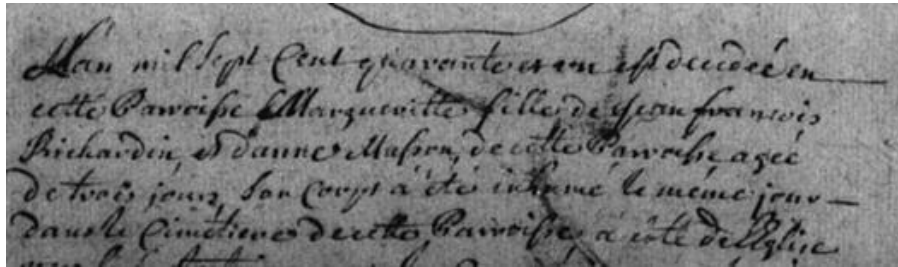 L'an mil sept cent quarante et un est decedée en
cette Paroisse Margueritte fille de Jean francois
Richardin, et d'anne Masson, de cette Paroisse agée
de trois jours, son corps à été inhumé le même jour
dans le Cimetiere de cette Paroisse à côté de l'Eglise